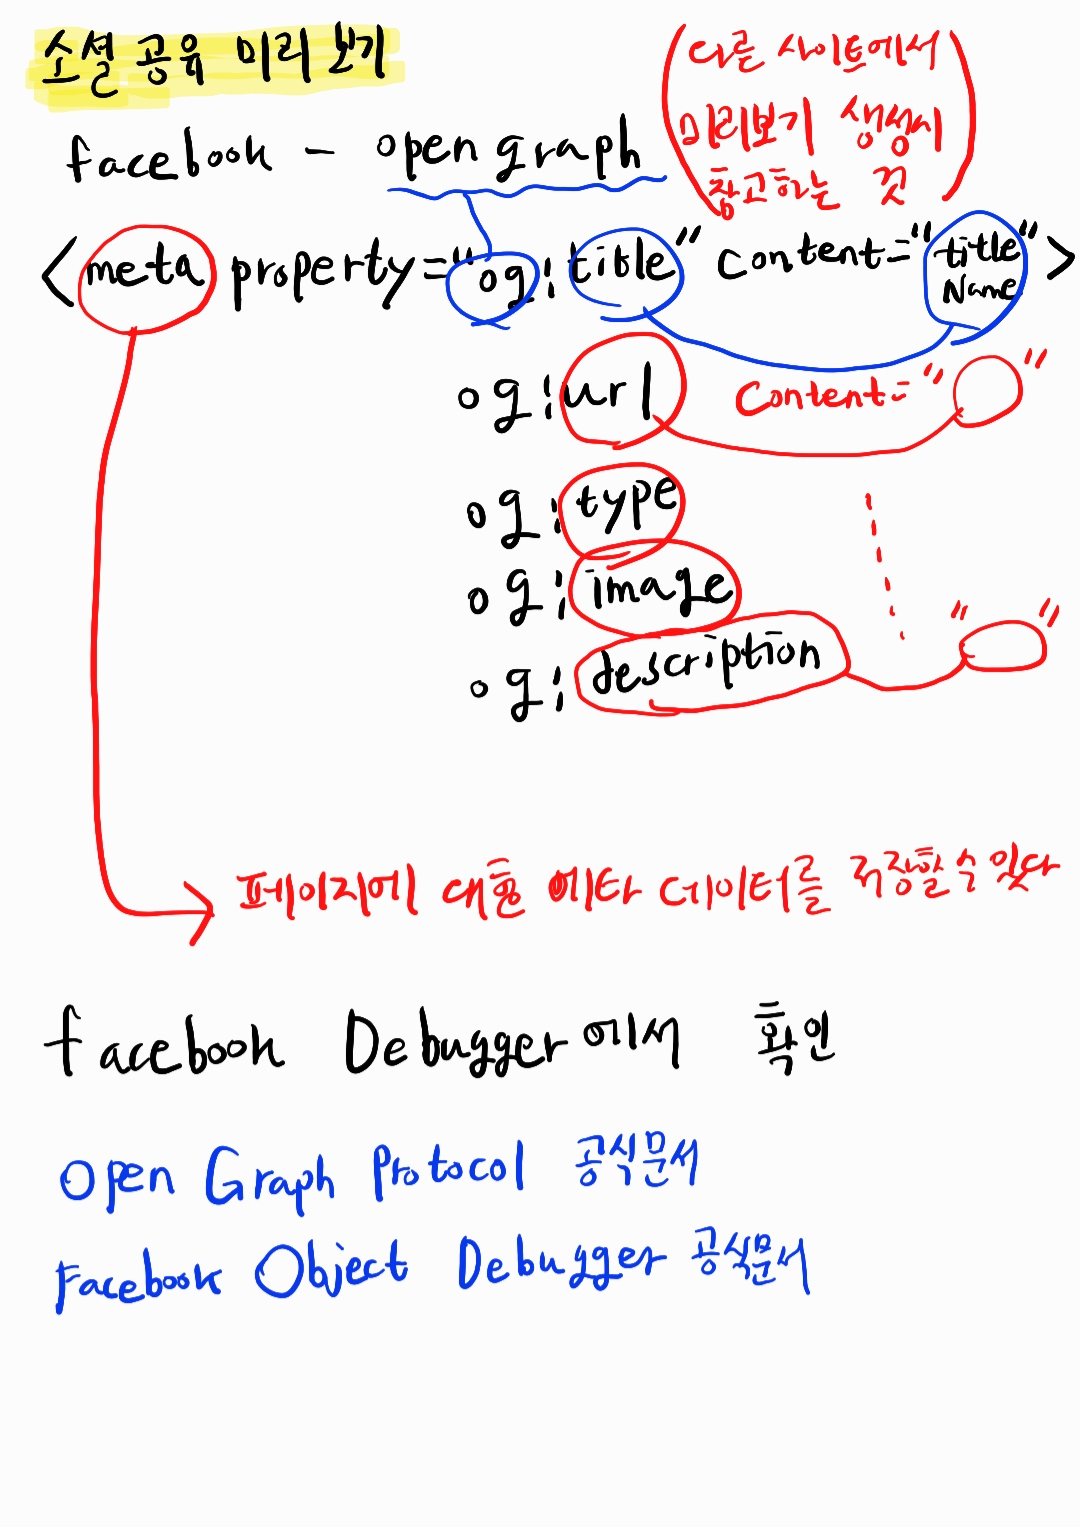 소셜 공유 미리보기
(다른 사이트에서
미리보기 생성시
참고하는 것)
facebook - open graph
<meta property="og:title" content="title Name">
og:url content=" "
og:type
og:image
og:description " "
페이지에 대한 메타 데이터를 저장할 수 있다
facebook Debugger에서 확인
Open Graph Protocol 공식문서
Facebook Object Debugger 공식문서